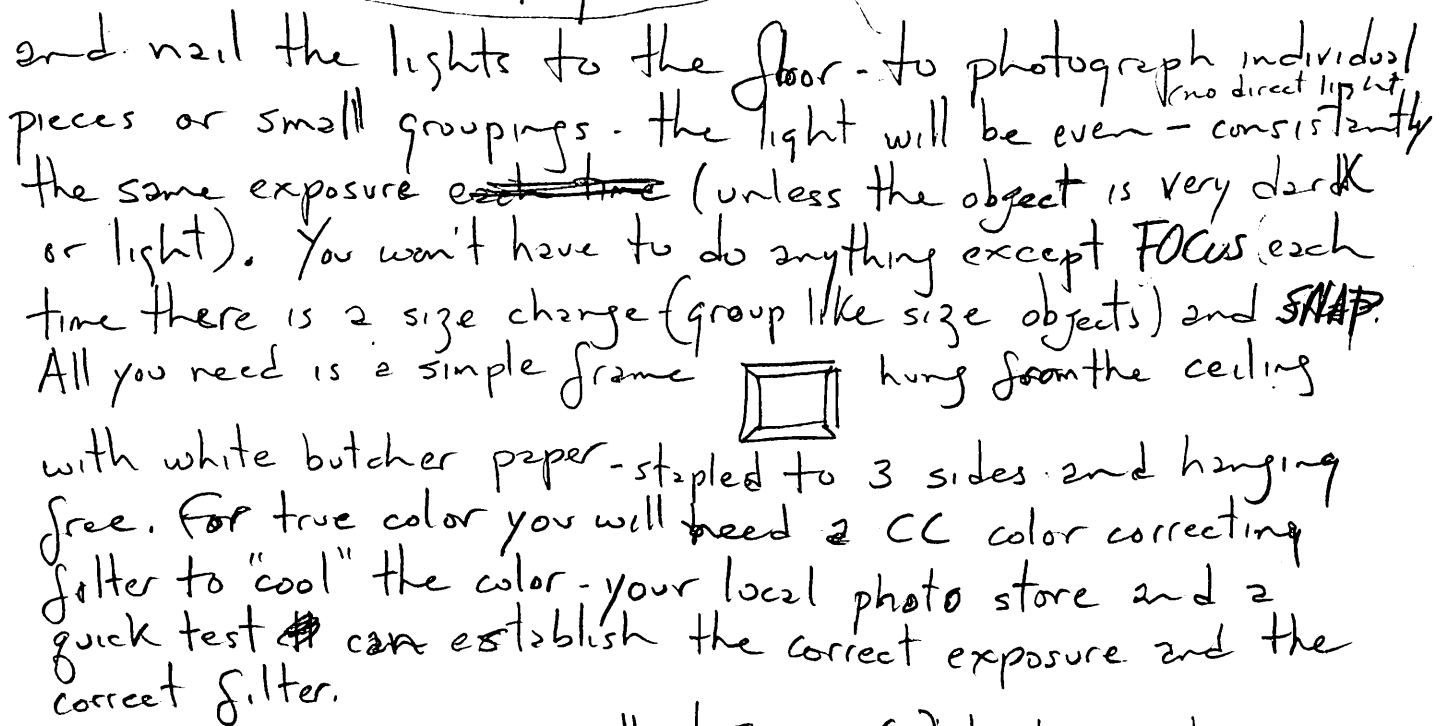 and nail the lights to the floor - to photograph individual
(no direct light)
pieces or small groupings. the light will be even - consistantly
the same exposure each time (unless the object is very dark
or light). You won't have to do anything except FOCUS each
time there is a size change (group like size objects) and SNAP.
All you need is a simple frame hung from the ceiling
with white butcher paper - stapled to 3 sides and hanging
free. For true color you will need a CC color correcting
filter to "cool" the color - your local photo store and a
quick test can establish the correct exposure and the
correct filter.